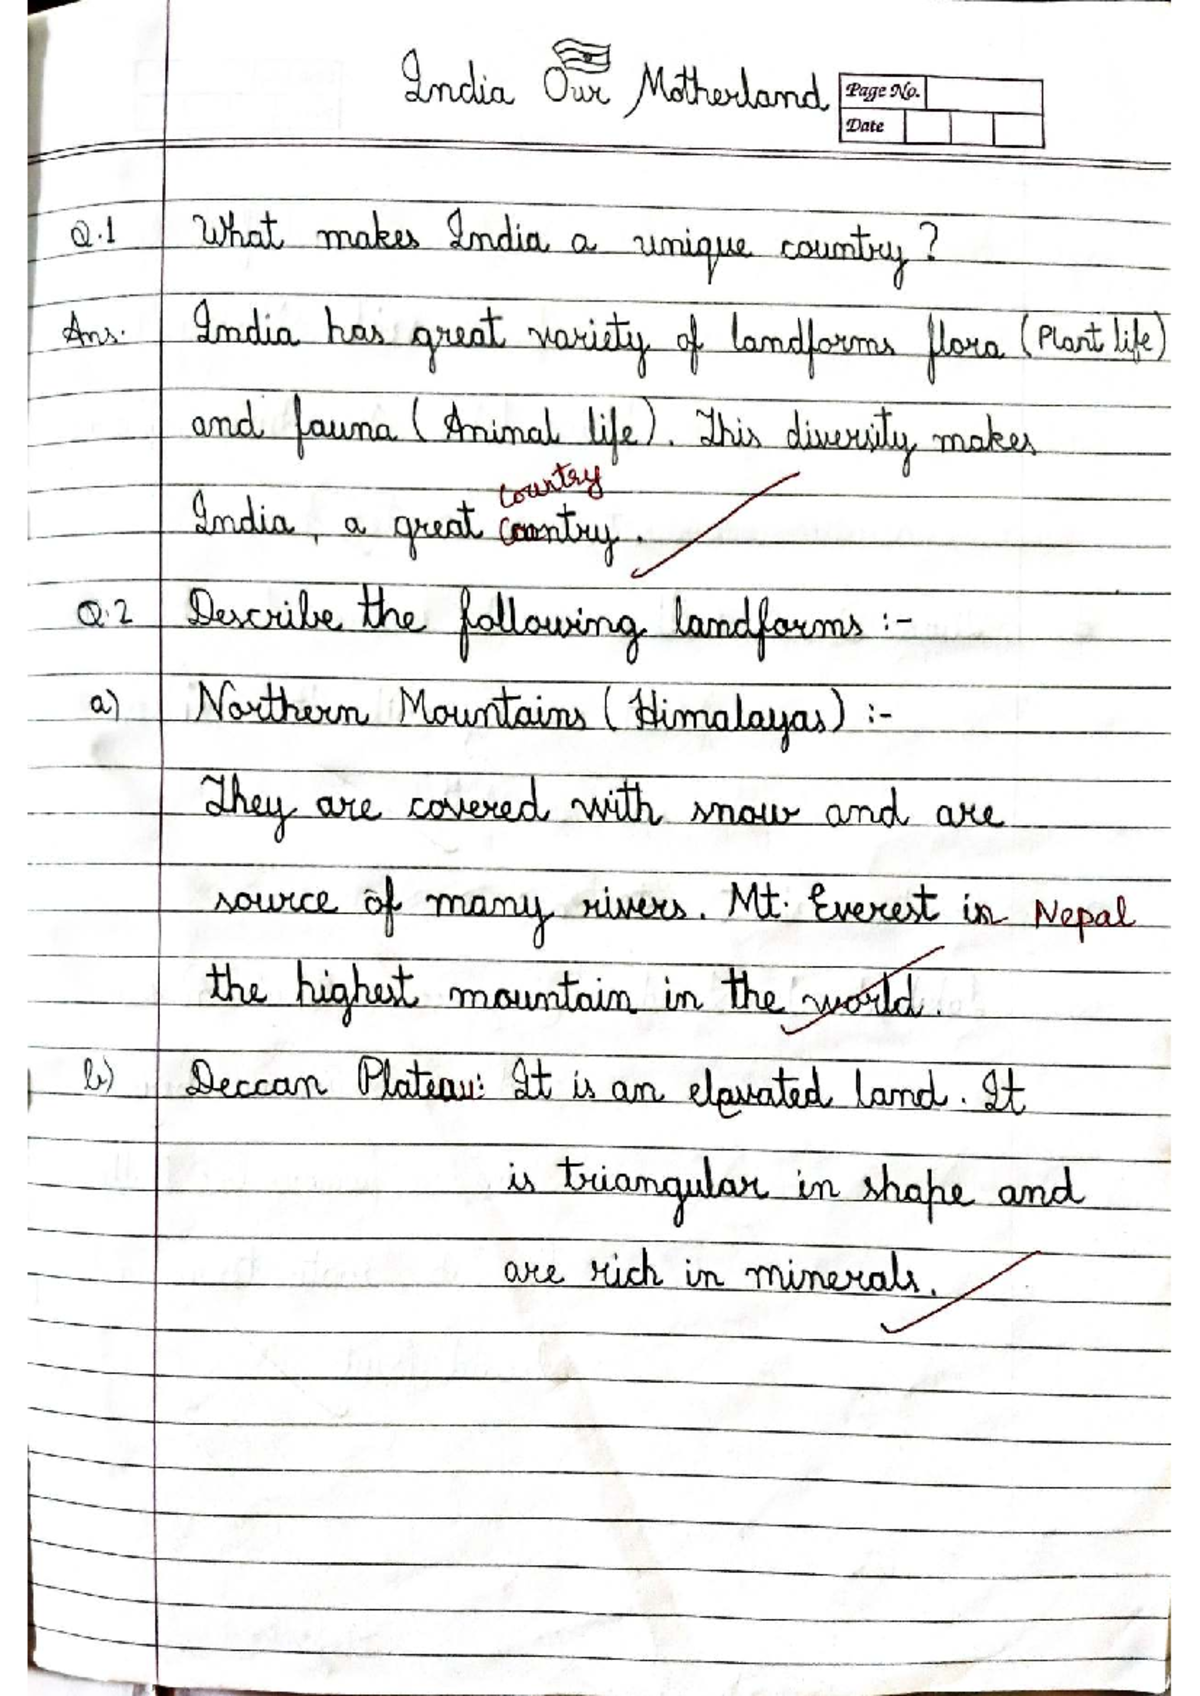 India Our Motherland
Page No.
Date
Q.1 What makes India a unique country?
Ans. India has great variety of landforms flora (Plant life)
and fauna (Animal life). This diversity makes
country
India, a great country.
Q.2 Describe the following landforms :-
a) Northern Mountains (Himalayas) :-
They are covered with snow and are
source of many rivers. Mt. Everest in Nepal
the highest mountain in the world.
b) Deccan Plateau: It is an elavated land. It
is triangular in shape and
are rich in minerals.